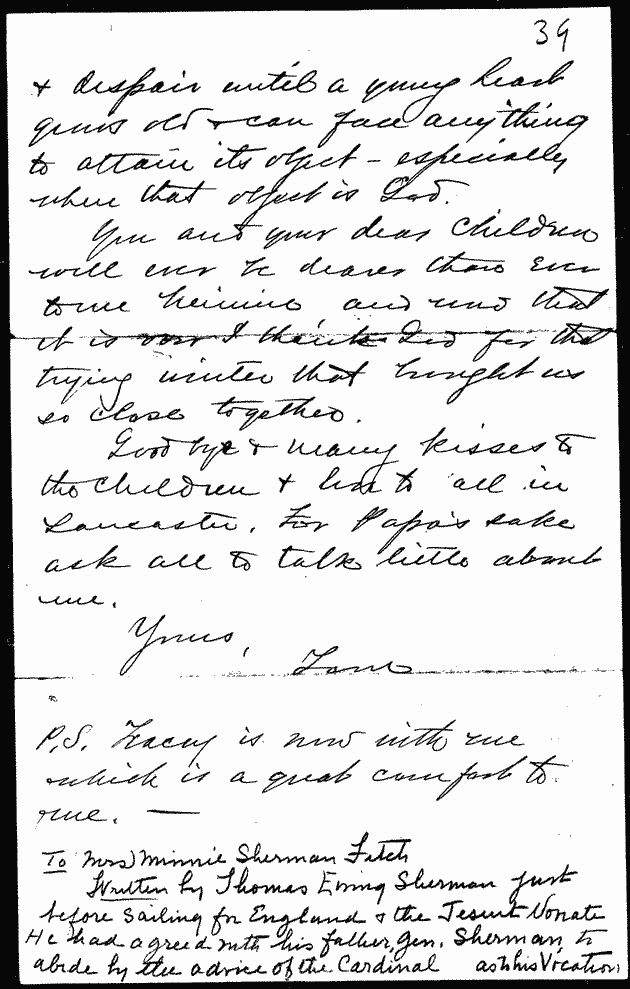 39
& despair until a young heart
grows old & can face anything
to attain its object - especially
when that object is God.
You and your dear children
will ever be dearer than ever
to me Minnie, and now that
it is over I thank God for that
trying winter that brought us
so close together.
Good bye & many kisses to
the children & love to all in
Lancaster. For Papa's sake
ask all to talk little about
me.
Yours,
Tom
P.S. Tracey is now with me
which is a great comfort to
me. —
To Mrs Minnie Sherman Fitch
Written by Thomas Ewing Sherman just
before sailing for England & the Jesuit Novate
He had agreed with his father, Gen. Sherman, to
abide by the advice of the Cardinal as to his Vocation